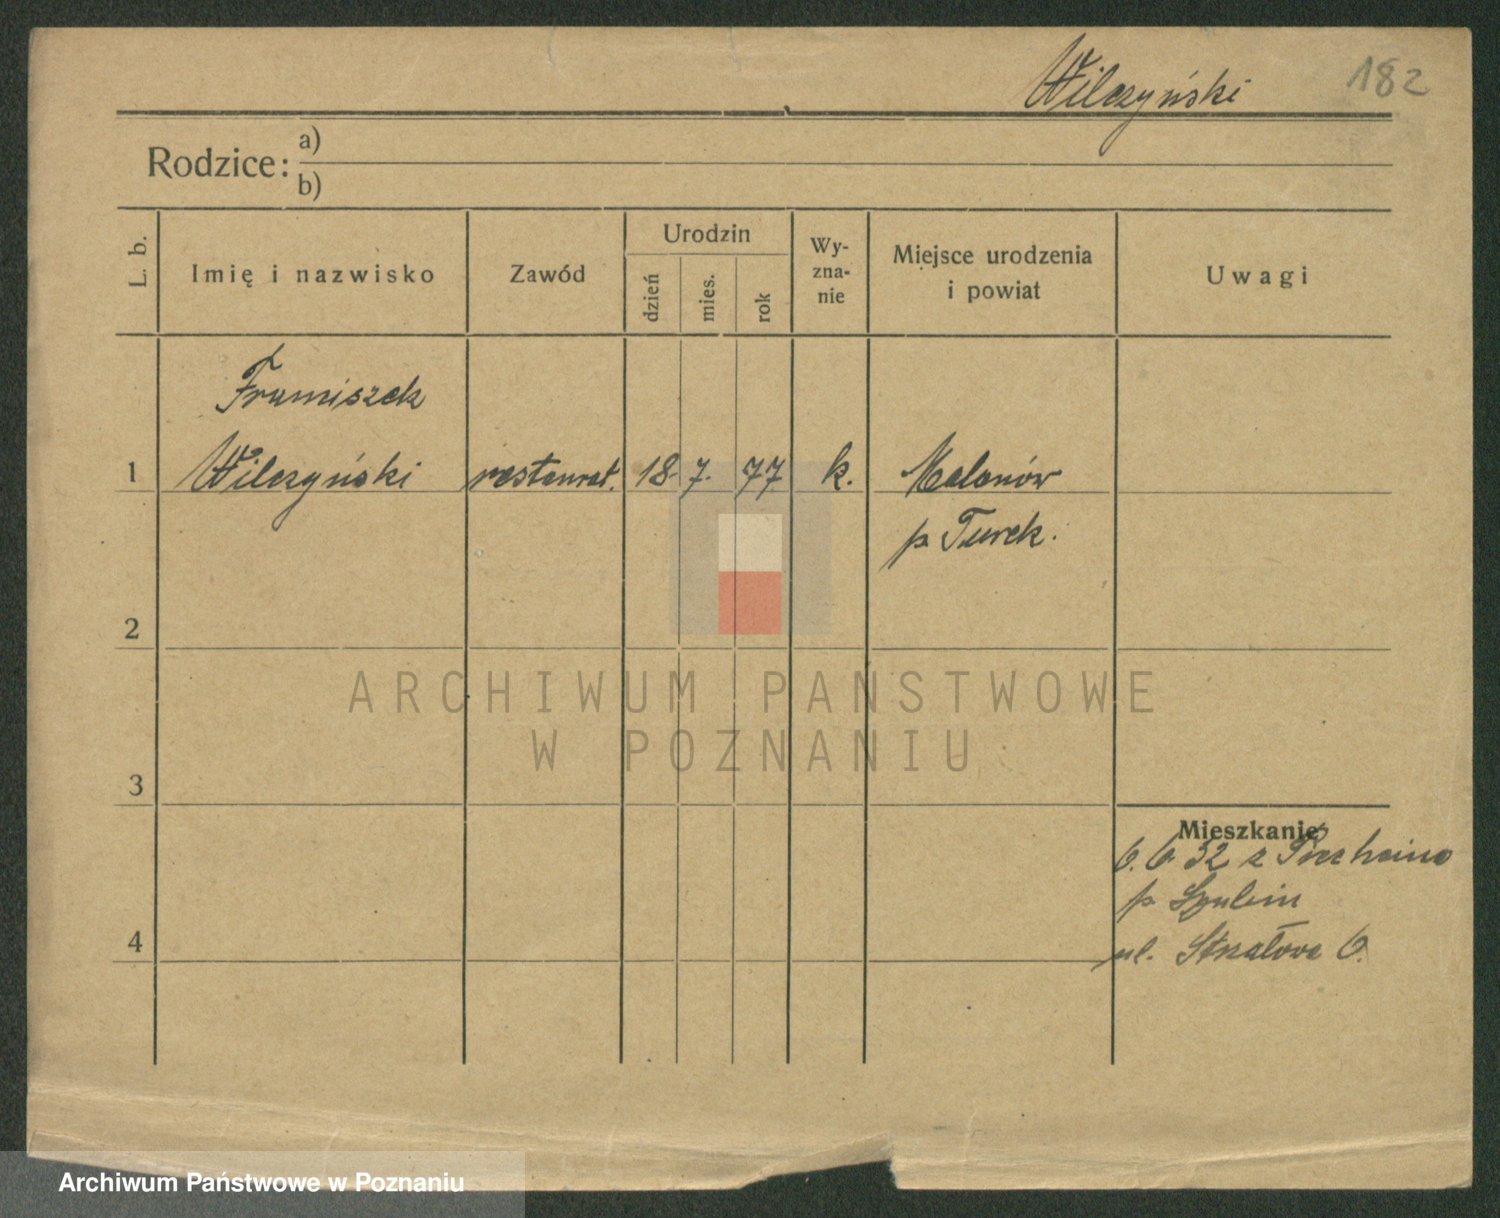 Wilczyński 182
Rodzice: a)
b)
L. b.
Imię i nazwisko
Zawód
Urodzin
dzień
mies.
rok
Wy-
zna-
nie
Miejsce urodzenia
i powiat
Uwagi
Franciszek
1 Wilczyński restaurat. 18. 7. 77 k. Malanów
p Turek.
2
3
4
Mieszkanie
6. 6 32 z
p Szubin
ul. Strzałowa 6.
ARCHIWUM PAŃSTWOWE
W POZNANIU
Archiwum Państwowe w Poznaniu